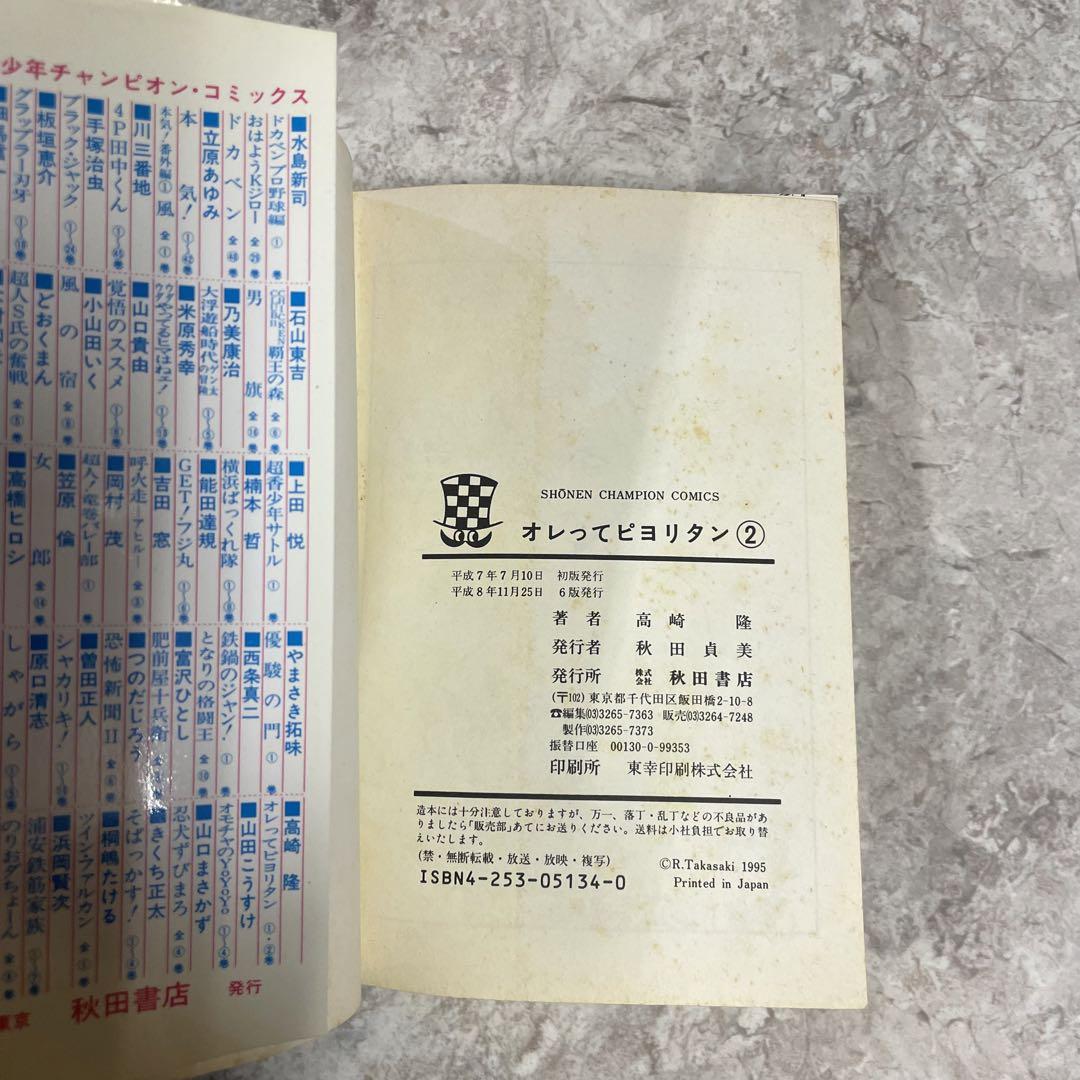 少年チャンピオン・コミックス
■水島新司
ドカベンプロ野球編 ① 巻
おはようKジロー 全㉙巻
ドカベン 全㊽巻
■立原あゆみ
本気! ①〜㊷巻
本気!番外編① 風 全①巻
■川三番地
4P田中くん ①〜㊺巻
■手塚治虫
ブラック・ジャック ①〜㉔巻
■板垣恵介
グラップラー刃牙
■石山東吉
覇王の森 全⑥巻
男旗 全⑯巻
■乃美康治
大浮遊船時代 ゲン太の冒険 ①〜⑤巻
■米原秀幸
ウダウダやってるヒマはねェ!
■山口貴由
覚悟のススメ
■小山田いく
風の宿 全⑧巻
■どおくまん
超人S氏の奮戦 全⑤巻
■上田悦
超香少年サトル ① 巻
■楠本哲
横浜ばっくれ隊 ①〜⑧巻
■能田達規
GET!フジ丸 ①〜⑥巻
■吉田窓
呼火走ーアヒルー 全③巻
■岡村茂
超人!竜巻バレー部 ① 巻
■笠原倫
女郎 全⑭巻
■高橋ヒロシ
■やまさき拓味
優駿の門 ① 巻
■西条真二
鉄鍋のジャン! ① 巻
となりの格闘王 全⑩巻
■富沢ひとし
肥前屋十兵衛
■つのだじろう
恐怖新聞II 全⑥巻
■曽田正人
シャカリキ!
■原口清志
しゃがら
■高崎隆
オレってピヨリタン ①・②巻
■山田こうすけ
オモチャのYoYoYo ①〜④巻
■山口まさかず
忍犬ずびまろ 全④巻
■きくち正太
そばっかす! ①〜④巻
■桐嶋たける
ツイン・ファルカン
■浜岡賢次
浦安鉄筋家族
のおだちょーん
東京 秋田書店 発行
SHŌNEN CHAMPION COMICS
オレってピヨリタン②
平成7年7月10日 初版発行
平成8年11月25日 6版発行
著者 高崎隆
発行者 秋田貞美
発行所 株式会社 秋田書店
(〒102) 東京都千代田区飯田橋2-10-8
☎編集(03)3265-7363 販売(03)3264-7248
製作(03)3265-7373
振替口座 00130-0-99353
印刷所 東幸印刷株式会社
造本には十分注意しておりますが、万一、落丁・乱丁などの不良品があ
りましたら「販売部」あてにお送りください。送料は小社負担でお取り替
えいたします。
(禁・無断転載・放送・放映・複写)
©R.Takasaki 1995
Printed in Japan
ISBN4-253-05134-0